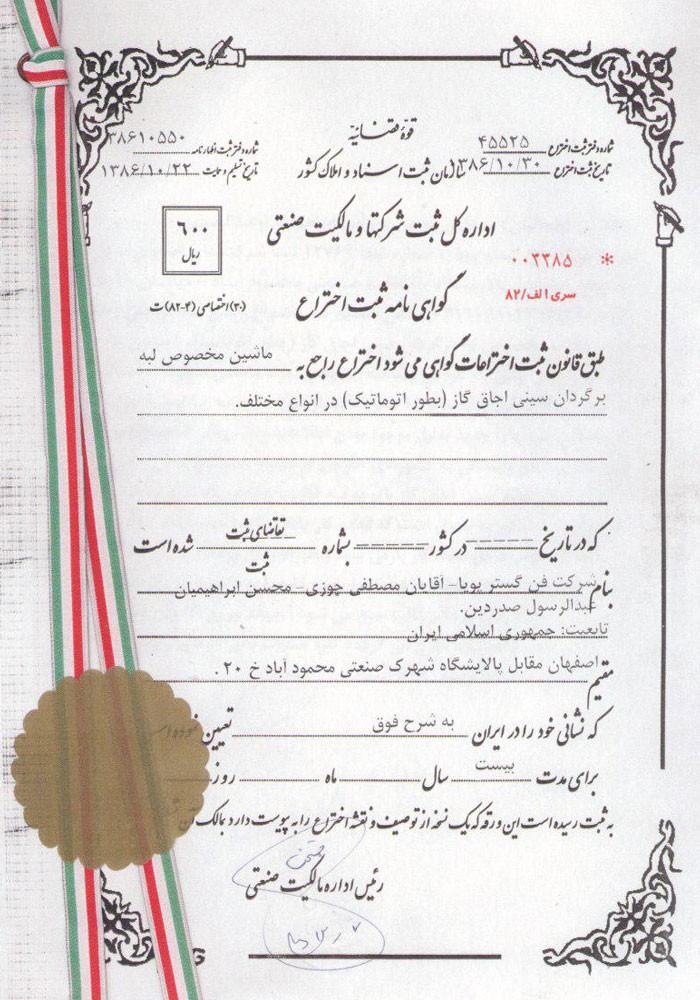 قوهٔ قضائیه
شماره دفتر ثبت اختراع ۴۵۵۲۵
شماره دفتر ثبت اظهارنامه ۳۸۶۱۰۵۵۰
سازمان ثبت اسناد و املاک کشور
تاریخ ثبت اختراع ۱۳۸۶/۱۰/۳۰
تاریخ تسلیم و حمایت ۱۳۸۶/۱۰/۲۲
اداره کل ثبت شرکتها و مالکیت صنعتی
۶۰۰
ریال
* ۰۰۲۲۸۵
سری الف/۸۲
گواهی نامه ثبت اختراع
(۳۰) اختصاصی (۴-۸۲) ت
طبق قانون ثبت اختراعات گواهی می شود اختراع راجع به ماشین مخصوص لبه
برگردان سینی اجاق گاز (بطور اتوماتیک) در انواع مختلف.
که در تاریخ ------ در کشور ------ بشماره تقاضای ثبت شده است
ثبت
بنام شرکت فن گستر پویا- آقایان مصطفی جوزی- محسن ابراهیمیان
عبدالرسول صدردین.
تابعیت: جمهوری اسلامی ایران
مقیم اصفهان مقابل پالایشگاه شهرک صنعتی محمود آباد خ ۲۰.
که نشانی خود را در ایران به شرح فوق تعیین نموده
برای مدت بیست سال ماه روز
به ثبت رسیده است این ورقه که یک نسخه از توصیف و نقشه اختراع را به پیوست دارد بمالک آن
رئیس اداره مالکیت صنعتی